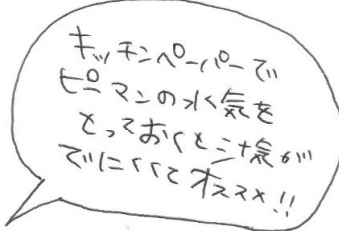 キッチンペーパーで
ピーマンの水気を
とっておくと汁気が
でにくくてオススメ!!